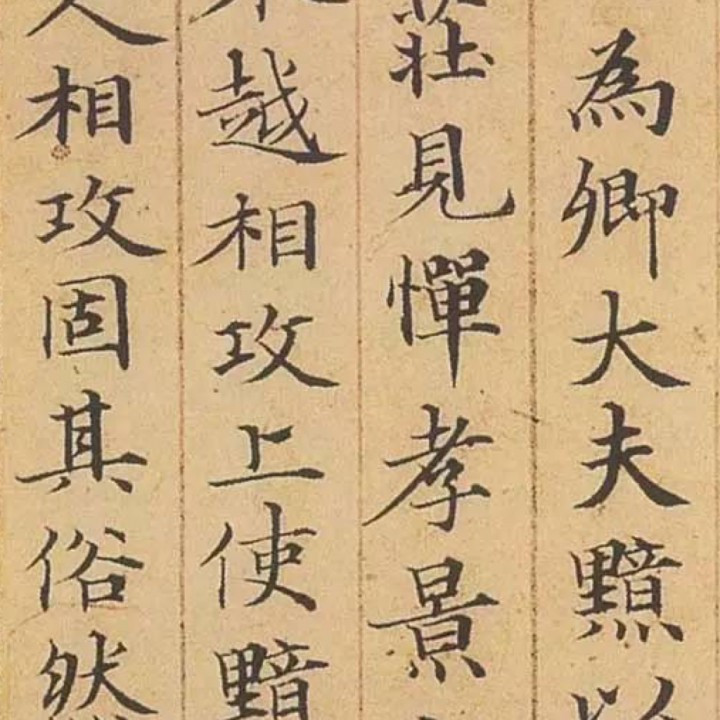 為卿大夫黯以
莊見憚孝景
東越相攻上使黯
人相攻固其俗然